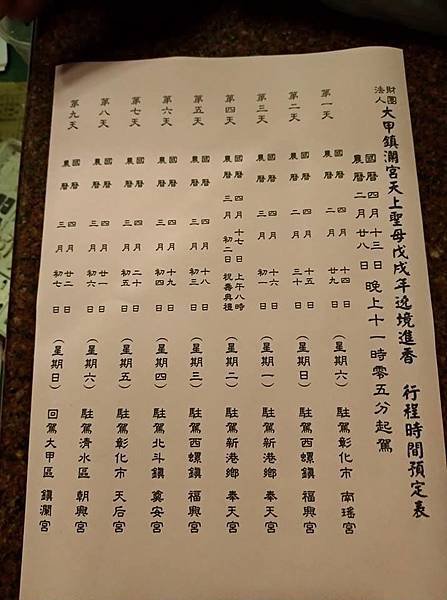 財團法人大甲鎮瀾宮天上聖母戊戌年遶境進香 行程時間預定表
國曆 四月十三日
農曆 二月廿八日 晚上十一時零五分起駕
第一天 國曆 四月 十四日 農曆 二月 廿九日 (星期六) 駐駕彰化市 南瑤宮
第二天 國曆 四月 十五日 農曆 二月 三十日 (星期日) 駐駕西螺鎮 福興宮
第三天 國曆 四月 十六日 農曆 三月 初一日 (星期一) 駐駕新港鄉 奉天宮
第四天 國曆 四月 十七日 上午八時 農曆 三月 初二日 祝壽典禮 (星期二) 駐駕新港鄉 奉天宮
第五天 國曆 四月 十八日 農曆 三月 初三日 (星期三) 駐駕西螺鎮 福興宮
第六天 國曆 四月 十九日 農曆 三月 初四日 (星期四) 駐駕北斗鎮 奠安宮
第七天 國曆 四月 二十日 農曆 三月 初五日 (星期五) 駐駕彰化市 天后宮
第八天 國曆 四月 廿一日 農曆 三月 初六日 (星期六) 駐駕清水區 朝興宮
第九天 國曆 四月 廿二日 農曆 三月 初七日 (星期日) 回駕大甲區 鎮瀾宮